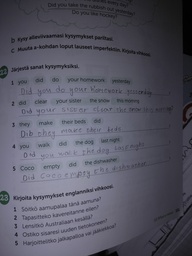 Did you take the rubbish out yesterday?
Do you like
b kysy allaviivaamasi kysymykset pariltasi.
c Muuta a-kohdan loput lauseet imperfektiin. Kirjoita vihkoosi.
22 Järjestä sanat kysymyksiksi.
1 you did do your homework yesterday
Did you do your homework yesterday
2 did clear your sister the snow this morning
Did your sister clear the snow this morning
3 they make their beds did
Did they make their beds
4 you walk did the dog last night
Did you walk the dog last night
5 Coco empty did the dishwasher
Did Coco empty the dishwasher
23 Kirjoita kysymykset englanniksi vihkoosi.
1 Söitkö aamupalaa tänä aamuna?
2 Tapasitteko kavereitanne eilen?
3 Lensitkö Australiaan kesällä?
4 Ostiko sisaresi uuden tietokoneen?
5 Harjoittelitko jalkapalloa vai jääkiekkoa?